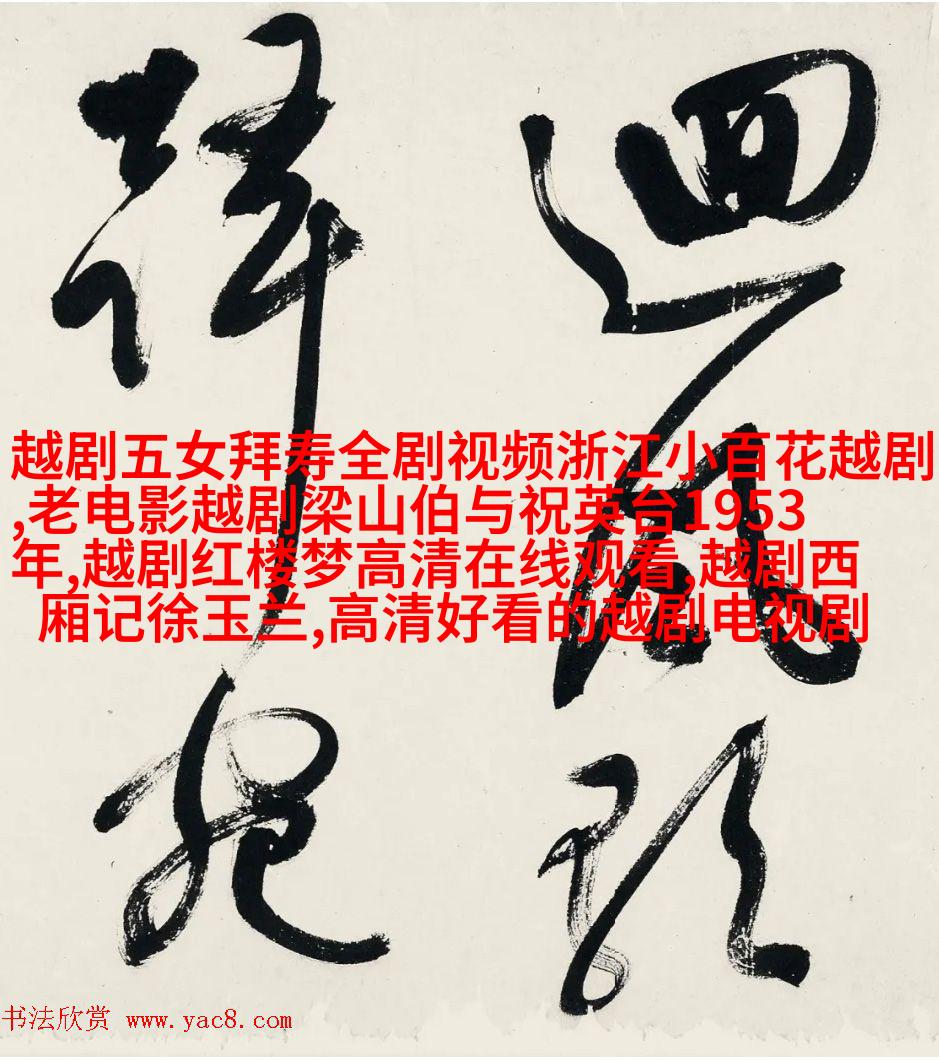 越剧五女拜寿全剧视频浙江小百花越剧
,老电影越剧梁山伯与祝英台1953
年,越剧红楼梦高清在线观看,越剧西
厢记徐玉兰,高清好看的越剧电视剧
迴風
书法欣赏 www.yac8.com